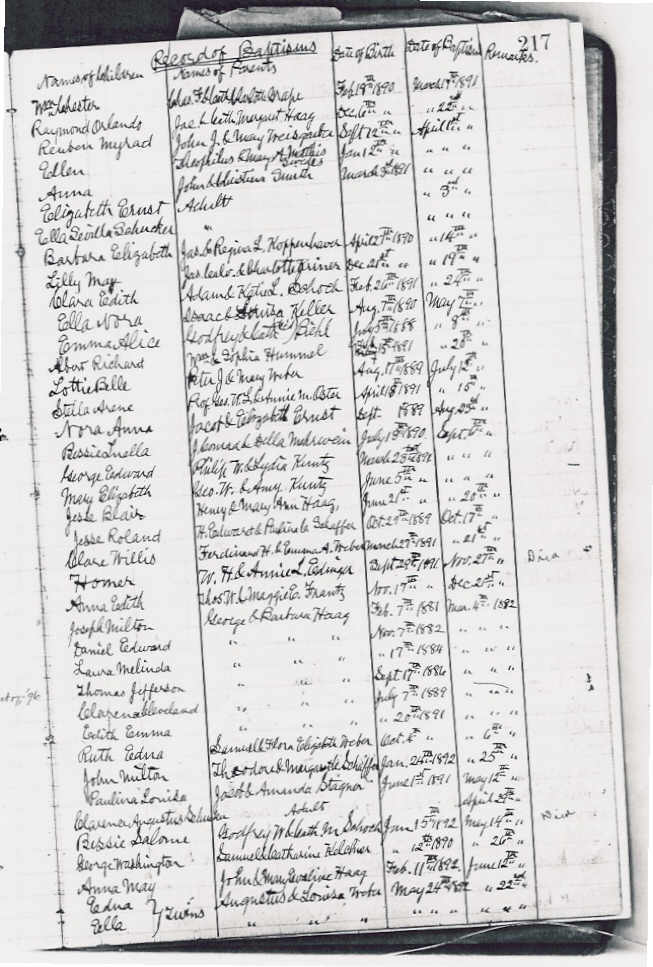 217
Record of Baptisms
Names of Children Names of Parents Date of Birth Date of Baptism Remarks.
Wm Chester Chas. F. & Drape Feb. 19th 1890 March 19th 1891
Raymond Orlando Jac. & Margaret Haag Dec. 6th " " 22nd "
Reuben Myrad John J. & May Sept 12th " April 1st "
Ellen Theophilus & Mary A. Jan 12th " " " "
Anna John & Christina Smith March 1891 " " "
Elizabeth Ernst Adult " 3rd "
Ella Savilla Schucker " " " "
Barbara Elizabeth Jas. & Regina L. Koppenhaver April 27th 1890 " 14th "
Lilly May Jas. & Charlotte Griner Dec. 21st " " 19th "
Clara Edith Adam & Katie L. Schoch Feb. 26th 1891 " 24th "
Ella Nora Isaac & Louisa Keller Aug. 7th 1890 May 7th "
Emma Alice Godfrey & Cath. Diehl 1888 " 8th "
Albert Richard Wm & Sophia Hummel 15th 1891 "
Lottie Belle Peter J. & Mary Weber Aug. 17th 1889 July 12th "
Stella Arene Prof. Geo. W. & Annie M. April 18th 1891 " 15th "
Nora Anna Jacob & Elizabeth Ernst Sept. 1889 Aug. 23rd "
Bessie Luella J. Conrad & Della July 13th 1890 Sept. 6th "
George Edward Philip W. & Lydia Kuntz March 1891 " " "
Mary Elizabeth Geo. W. & Amy Kuntz June 5th " " " "
Jesse Blair Henry & Mary Ann Haag, June 21st " " 20th "
Jesse Roland H. Edward & Paulina C. Schaffer Oct. 29th 1889 Oct. 17th "
Clare Willis Ferdinand H. & Emma A. Weber March 27th 1891 " 21st "
Homer W. H. & Annie L. Edinger Sept 29th 1891 Nov. 27th " Died
Anna Edith Thos W. & Maggie C. Frantz Nov. 17th " Dec 20th "
Joseph Milton George & Barbara Haag Feb. 7th 1881 Mar. 4th 1882
Daniel Edward " " " Nov. 7th 1882 " " "
Laura Melinda " " " " 17th 1884 " " "
Thomas Jefferson " " " Sept 17th 1886 " " "
Clarence Cleveland " " " July 7th 1889 " " "
Edith Emma " " " " 20th 1891 " " "
Ruth Edna Samuel & Flora Elizabeth Weber Oct. " " 6th "
John Milton Theodore & Margaretta Schaffer Jan. 24th 1892 " 25th "
Paulina Louisa Jacob & Amanda Stagner June 1st 1891 May 12th "
Clarence Augustus Schucker Adult April 24th "
Bessie Salome Godfrey W. & Cath. M. Schoch Jan 15th 1892 May 14th " Died
George Washington Samuel & Catharine Kelchner " 12th 1890 " 26th "
Anna May John & Mary Evaline Haag Feb. 11th 1892 June 12th "
Edna } Twins Augustus & Louisa Weber May 24th 1892 " 22nd "
Ella " " " " " " " " "